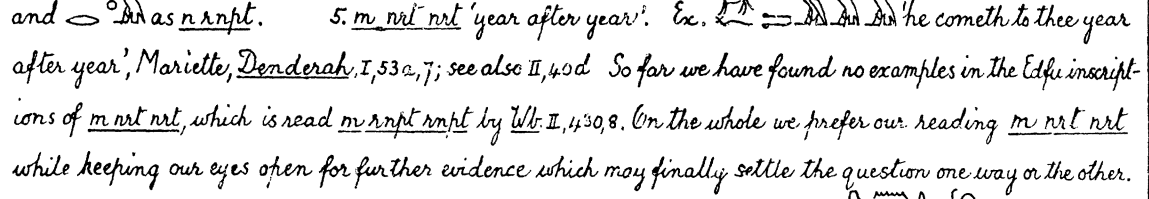 and as n rnpt. 5. m nrt nrt 'year after year'. Ex. 'he cometh to thee year
after year', Mariette, Denderah, I, 53a, 7; see also II, 40d So far we have found no examples in the Edfu inscript-
ions of m nrt nrt, which is read m rnpt rnpt by Wb. II, 430, 8. On the whole we prefer our reading m nrt nrt
while keeping our eyes open for further evidence which may finally settle the question one way or the other.